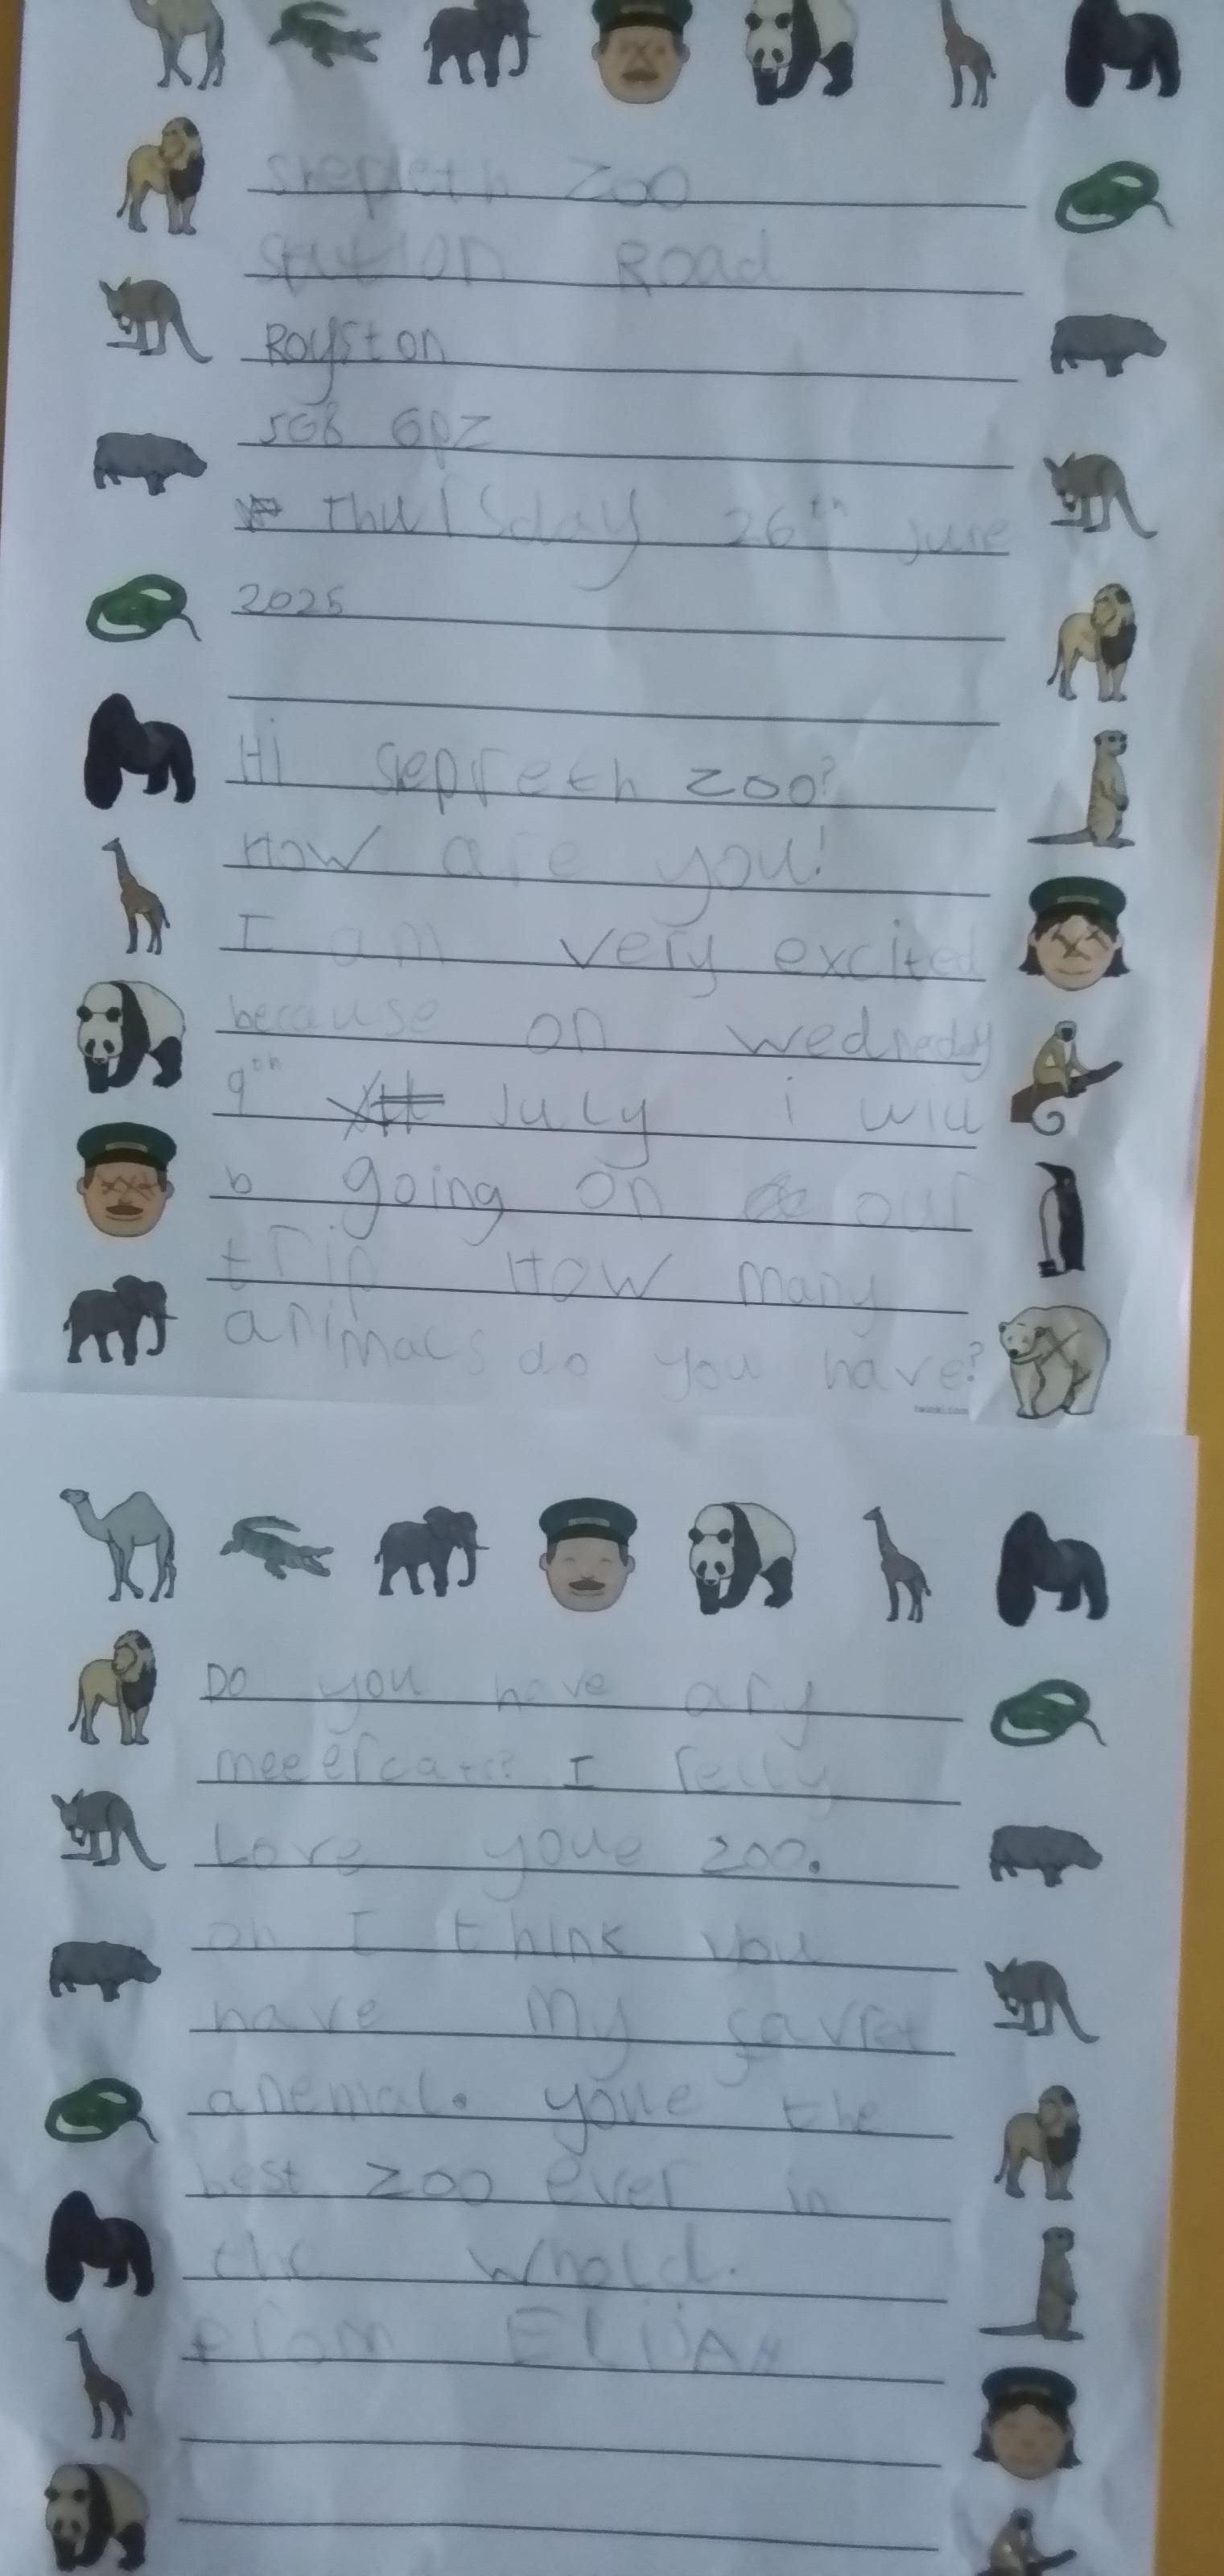 shepreth Zoo
station Road
Royston
SG8 6PZ
Thursday 26th June
2025
Hi sepreth zoo?
How are you!
I am very excited
because on wednedday
9th July i will
b going on our
trip How many
animals do you have?
twinkl.com
Do you have any
meeercats? I relly
Love youe zoo.
oh I think you
have My favret
anemal. youe the
best zoo ever in
the whold.
From ELijAH